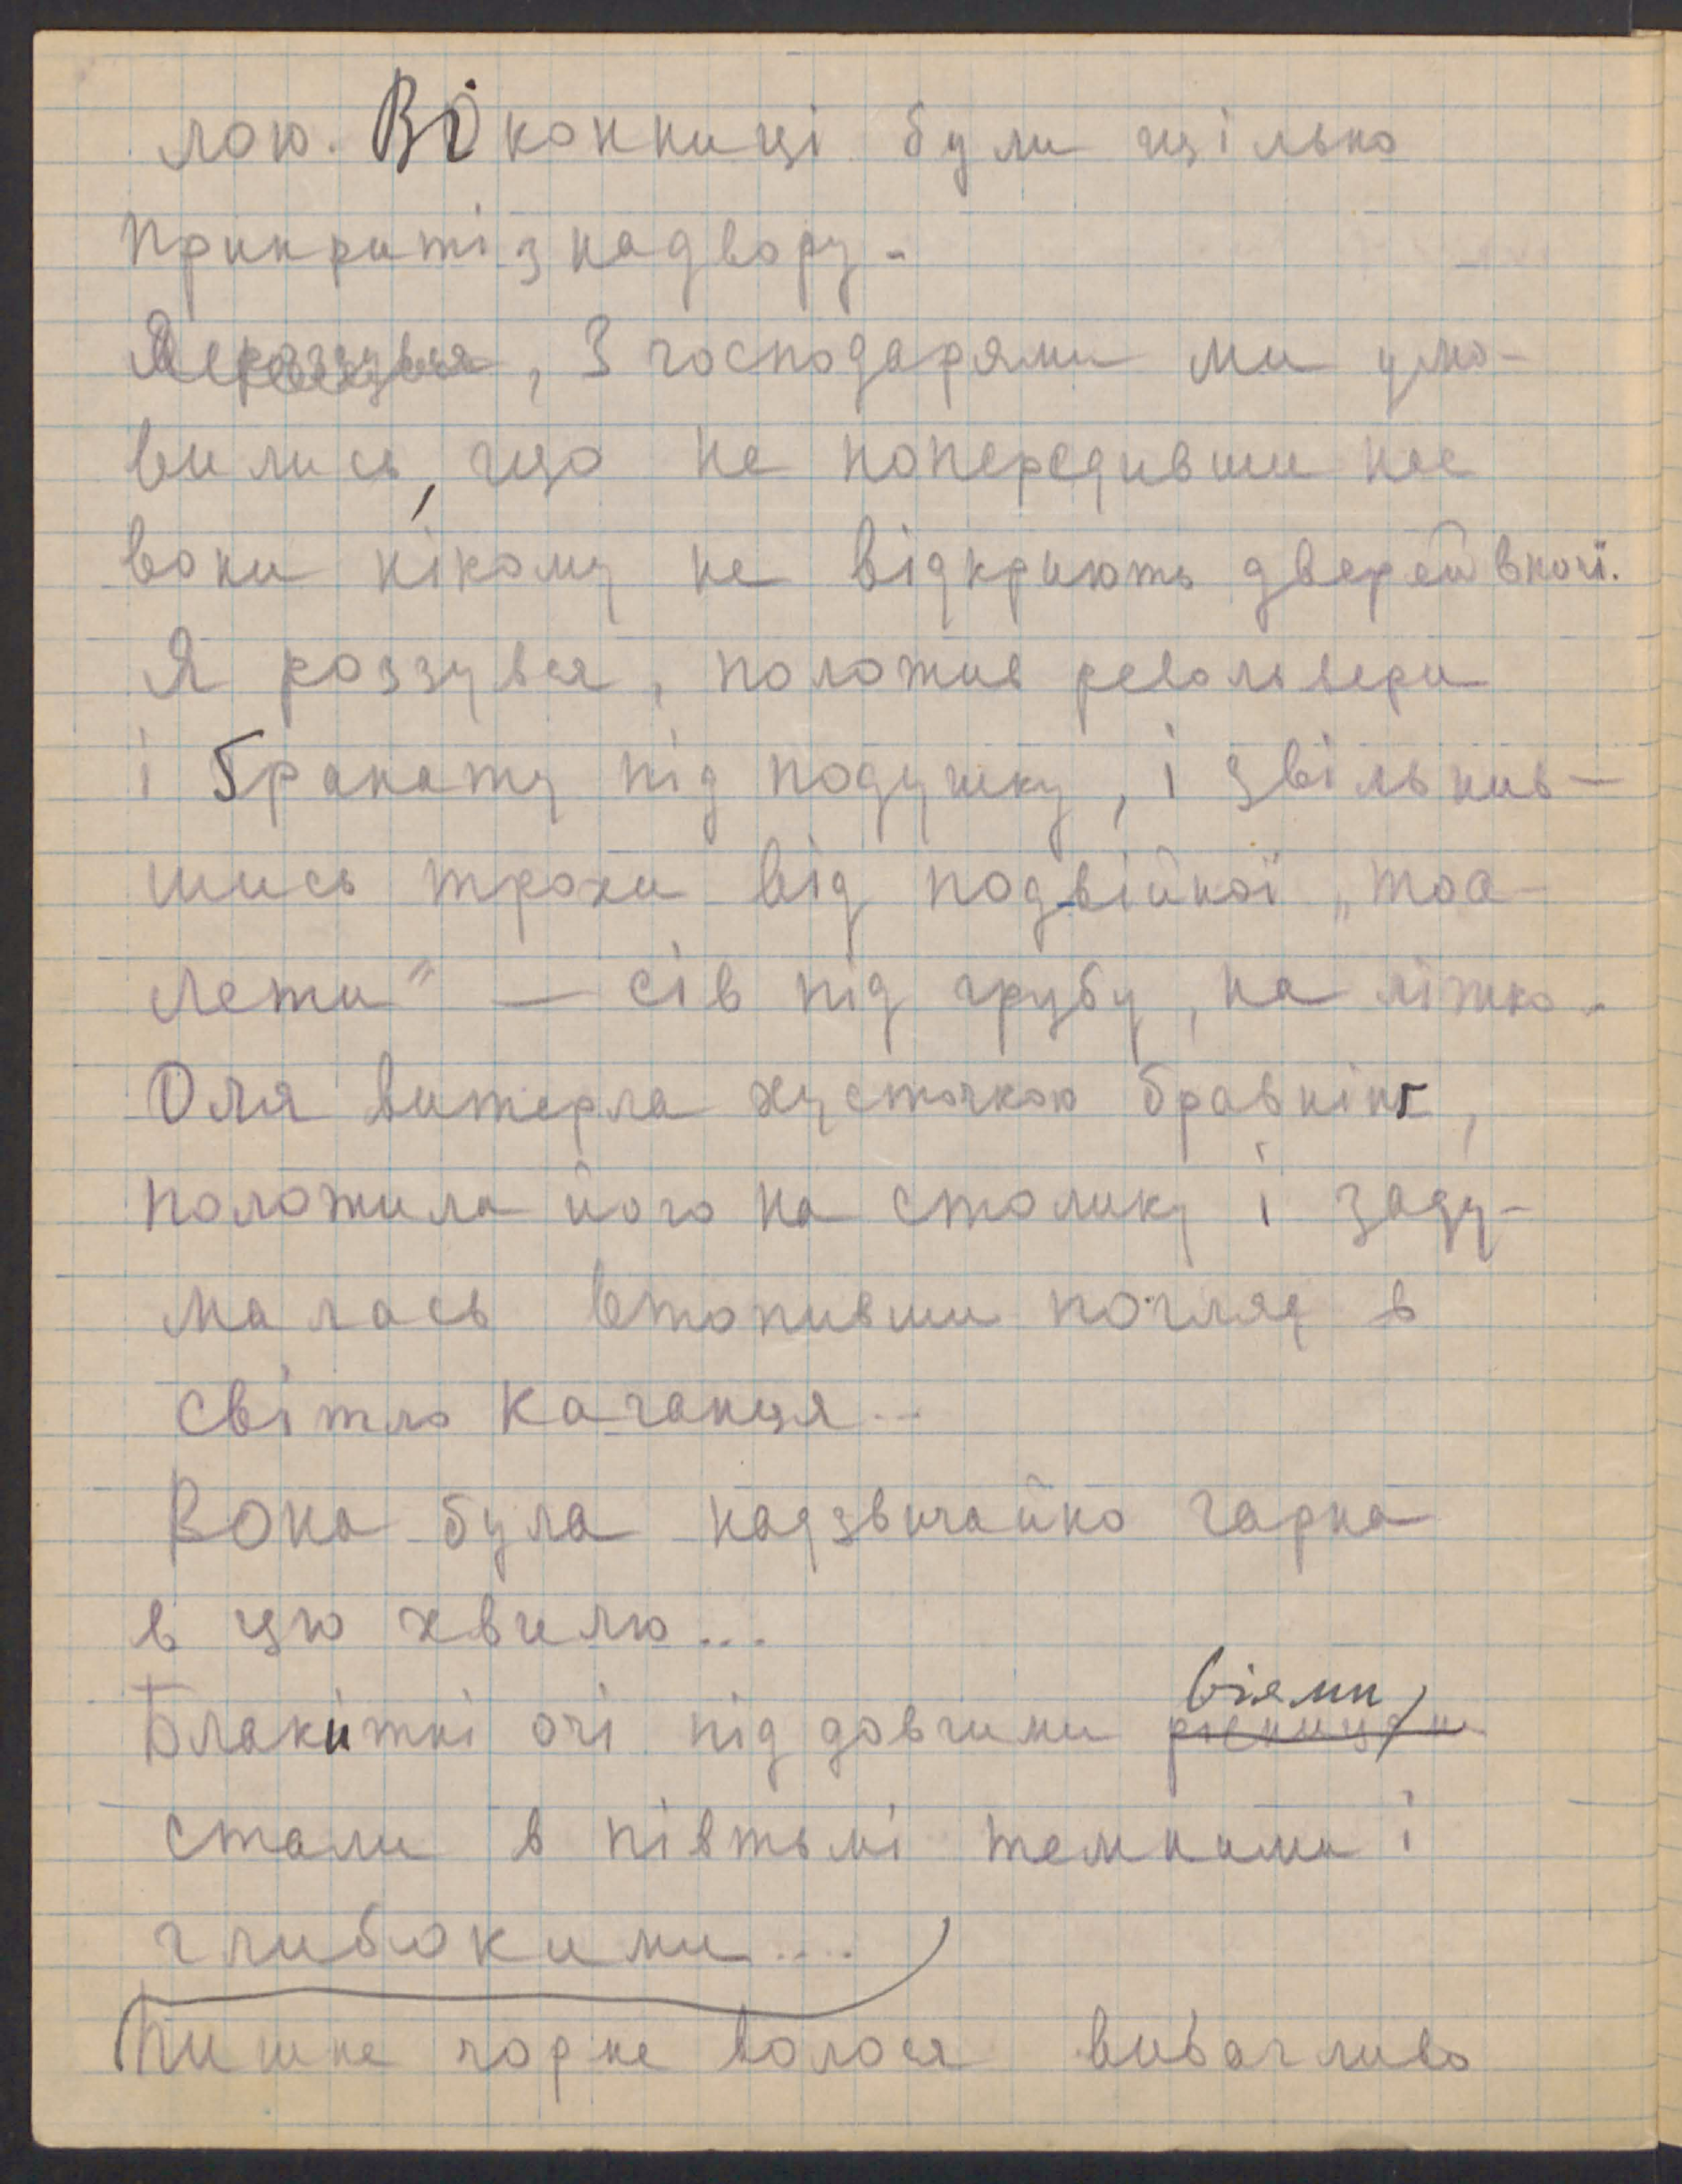 лою. Віконниці були щільно
прикриті знадвору.
Я роззувся, З господарями ми умо-
вились, що не попередивши нас
вони нікому не відкриють дверей вночі.
Я роззувся, положив револьвери
і ґранату під подушку, і звільнив-
шись трохи від подвійної „тоа-
лети" — сів під грубу, на ліжко.
Оля витерла хусточкою бравнінґ,
положила його на столику і заду-
малась втопивши погляд в
світло каганця...
Вона була надзвичайно гарна
в цю хвилю...
віями,
Блакитні очі під довгими рісницями
стали в півтьмі темними і
глибокими....
Пишне чорне волосся вибагливо